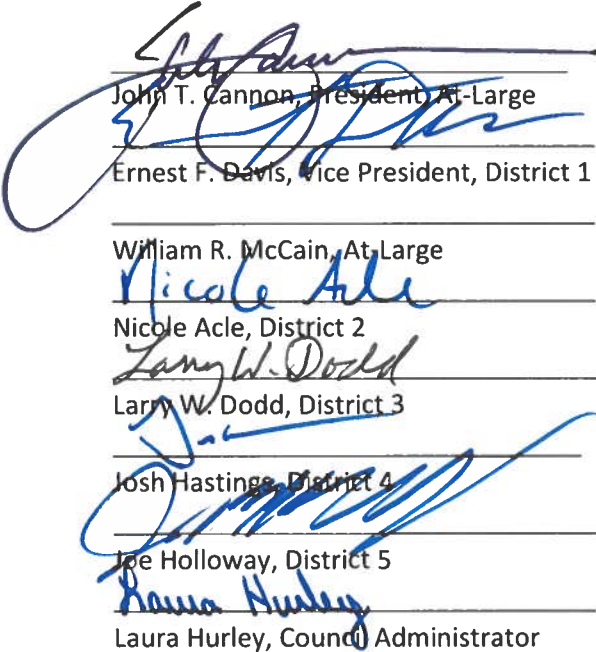 John T. Cannon, President, At-Large
Ernest F. Davis, Vice President, District 1
William R. McCain, At-Large
Nicole Acle
Nicole Acle, District 2
Larry W. Dodd
Larry W. Dodd, District 3
Josh Hastings, District 4
Joe Holloway, District 5
Laura Hurley
Laura Hurley, Council Administrator